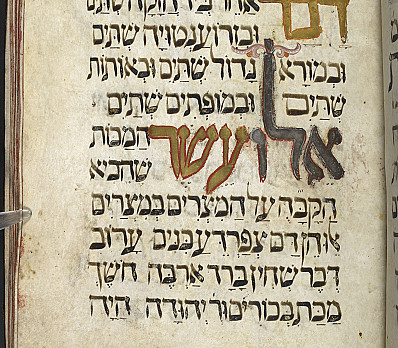 דם
אחר ביד חזקה שתים
ובזרוע נטויה שתים
ובמורא גדול שתים ובאותות
שתים ובמופתים שתים
אלו עשר המכות
שהביא
הקבה על המצרים במצרים
אלו הן דם צפרדע כנים ערוב
דבר שחין ברד ארבה חשך
מכת יהודה היה